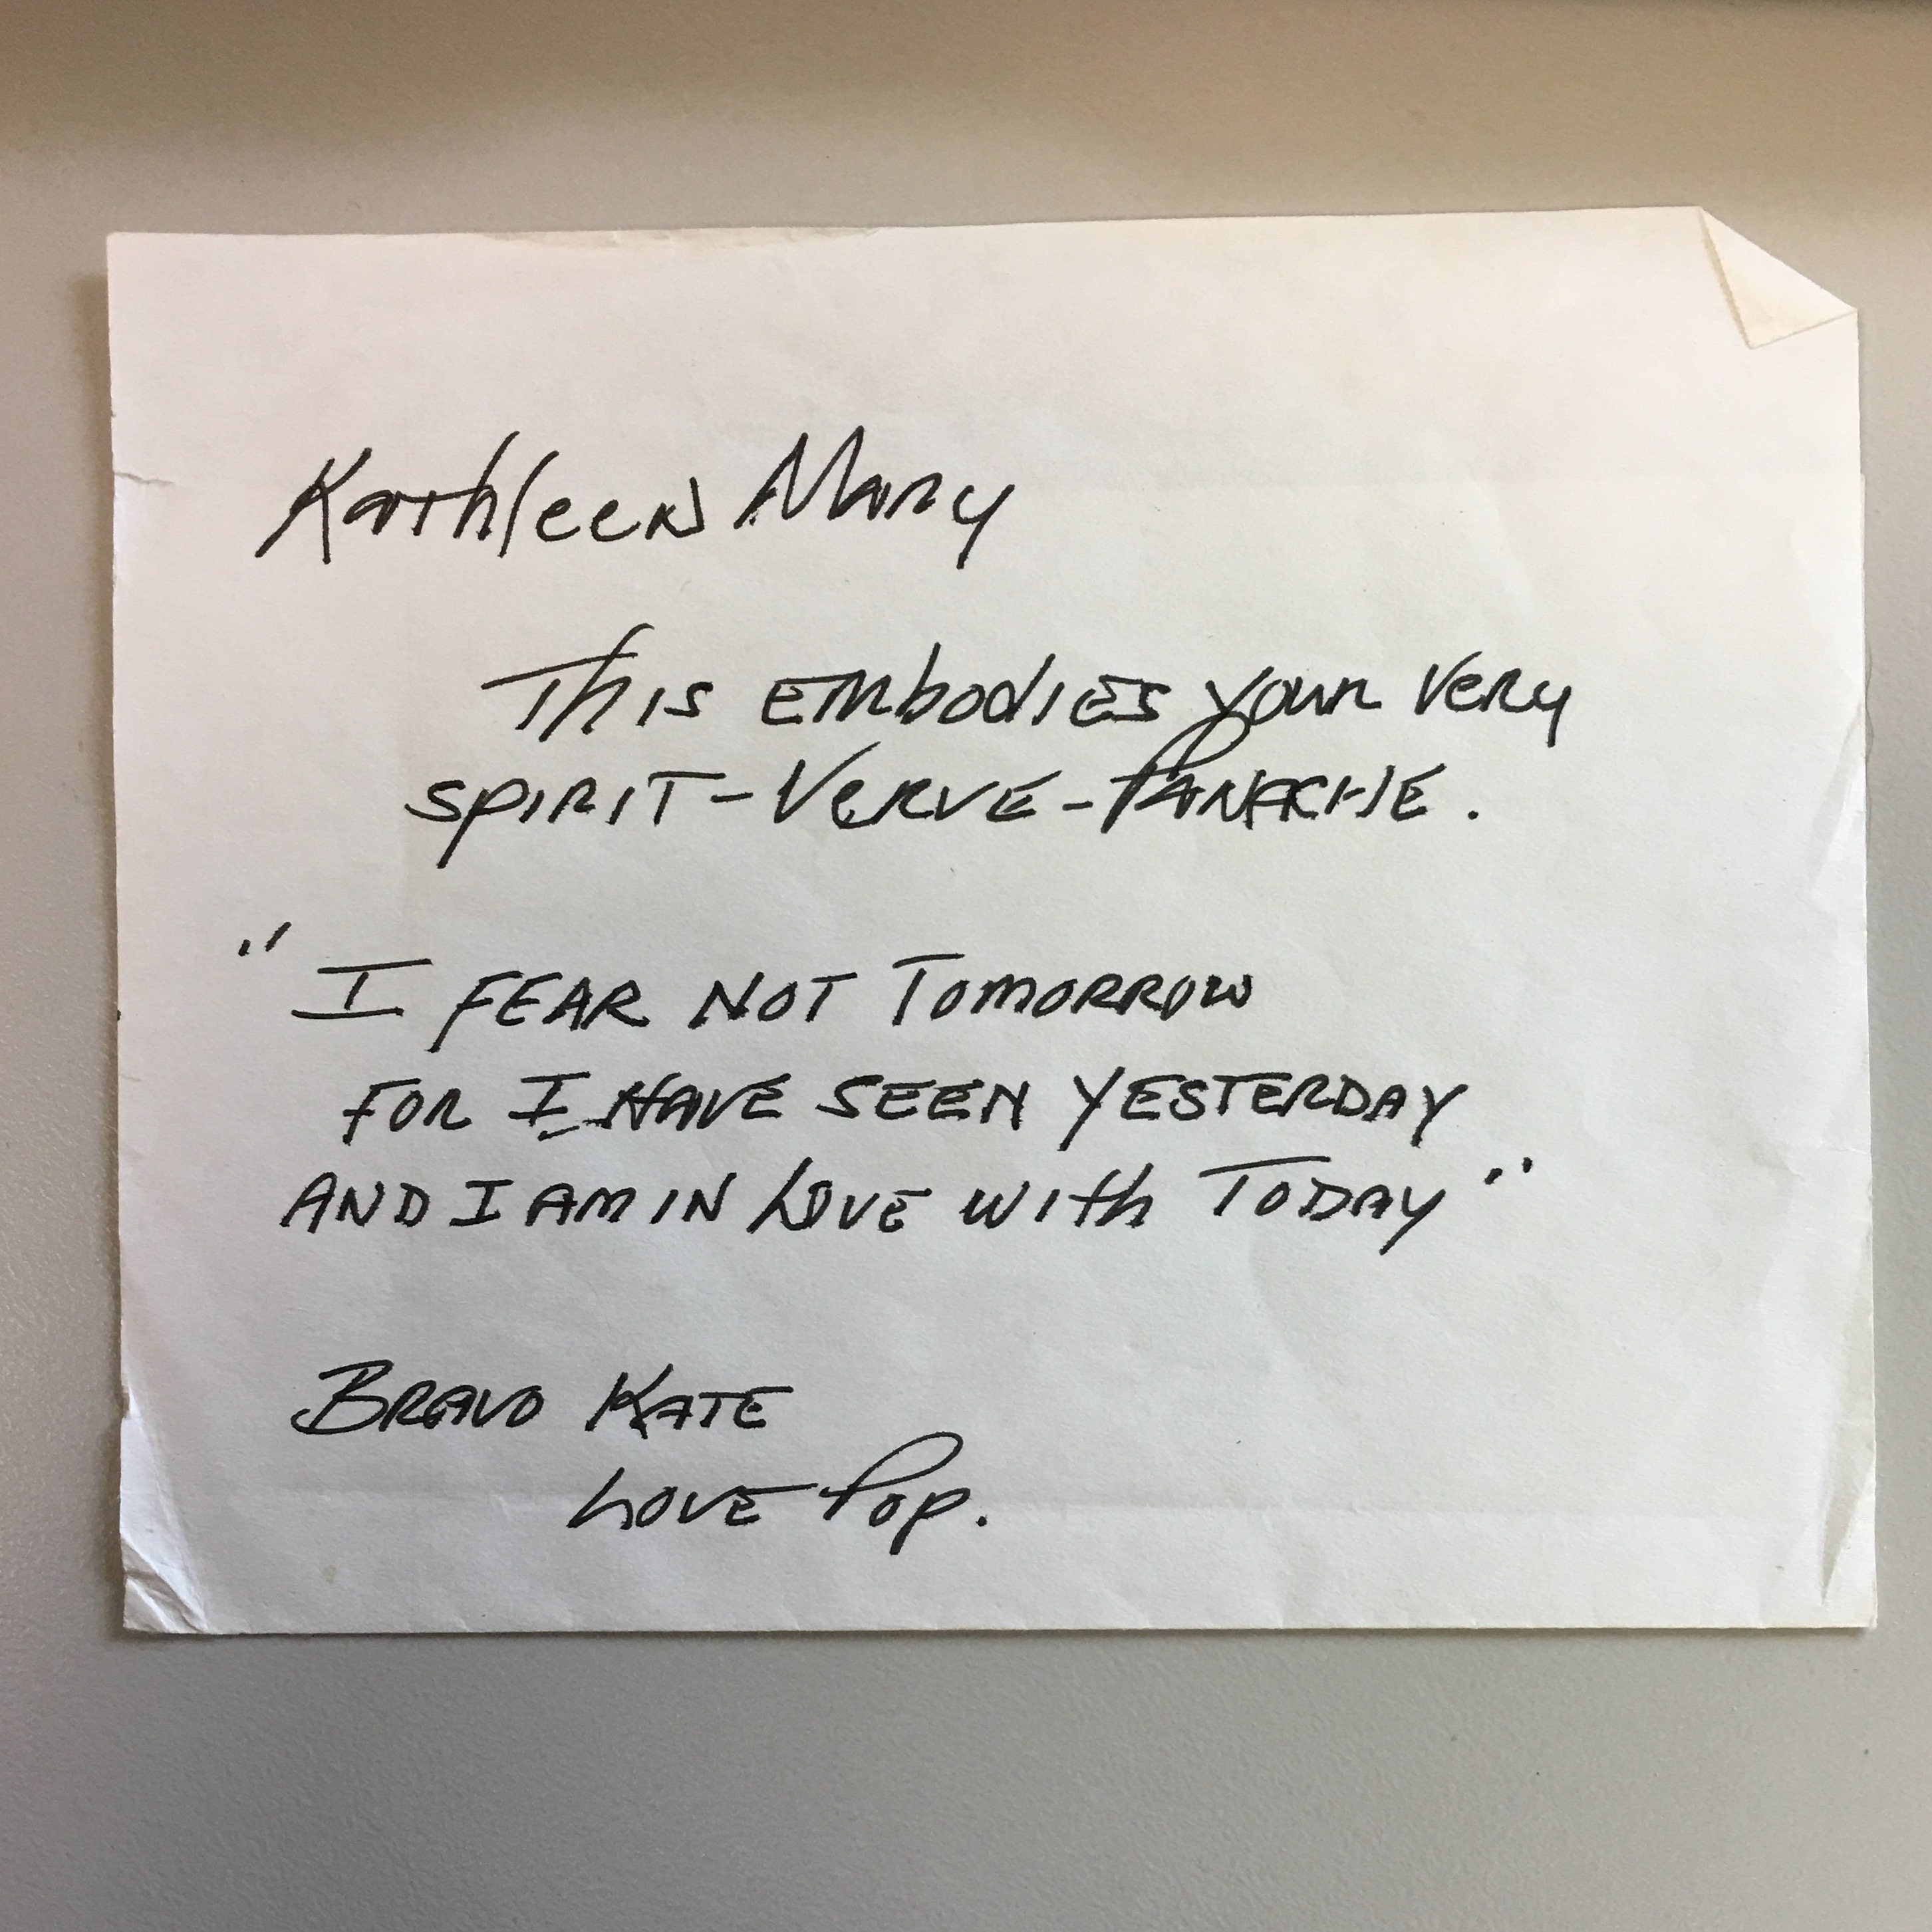 Kathleen Mary
This embodies your very
spirit - Verve - Panache.
" I FEAR NOT TOMORROW
FOR I HAVE SEEN YESTERDAY
AND I AM IN LOVE WITH TODAY "
BRAVO KATE
LOVE Pop.